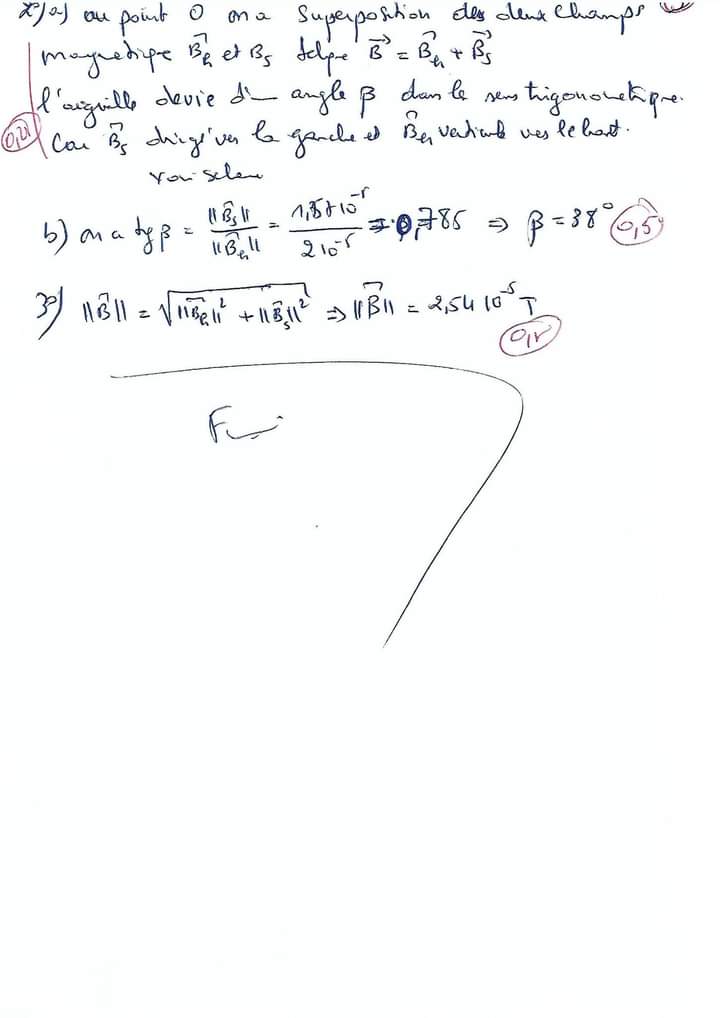 2°/a-) au point O on a Superposition des deux champs
magnetique B⃗h et Bs telque B⃗ = B⃗h + B⃗s
l'aiguille devie d'— angle β dans le sens trigonometrique.
0,25
Car B⃗s dirigé vers la gauche et B⃗h vertical vers le haut.
voir schema
b) on a tg β = ||B⃗s|| / ||B⃗h|| = 1,57 10⁻⁵ / 2 10⁻⁵ = 0,785 ⇒ β = 38° 0,5
3°) ||B⃗|| = √(||B⃗h||² + ||B⃗s||²) ⇒ ||B⃗|| = 2,54 10⁻⁵ T